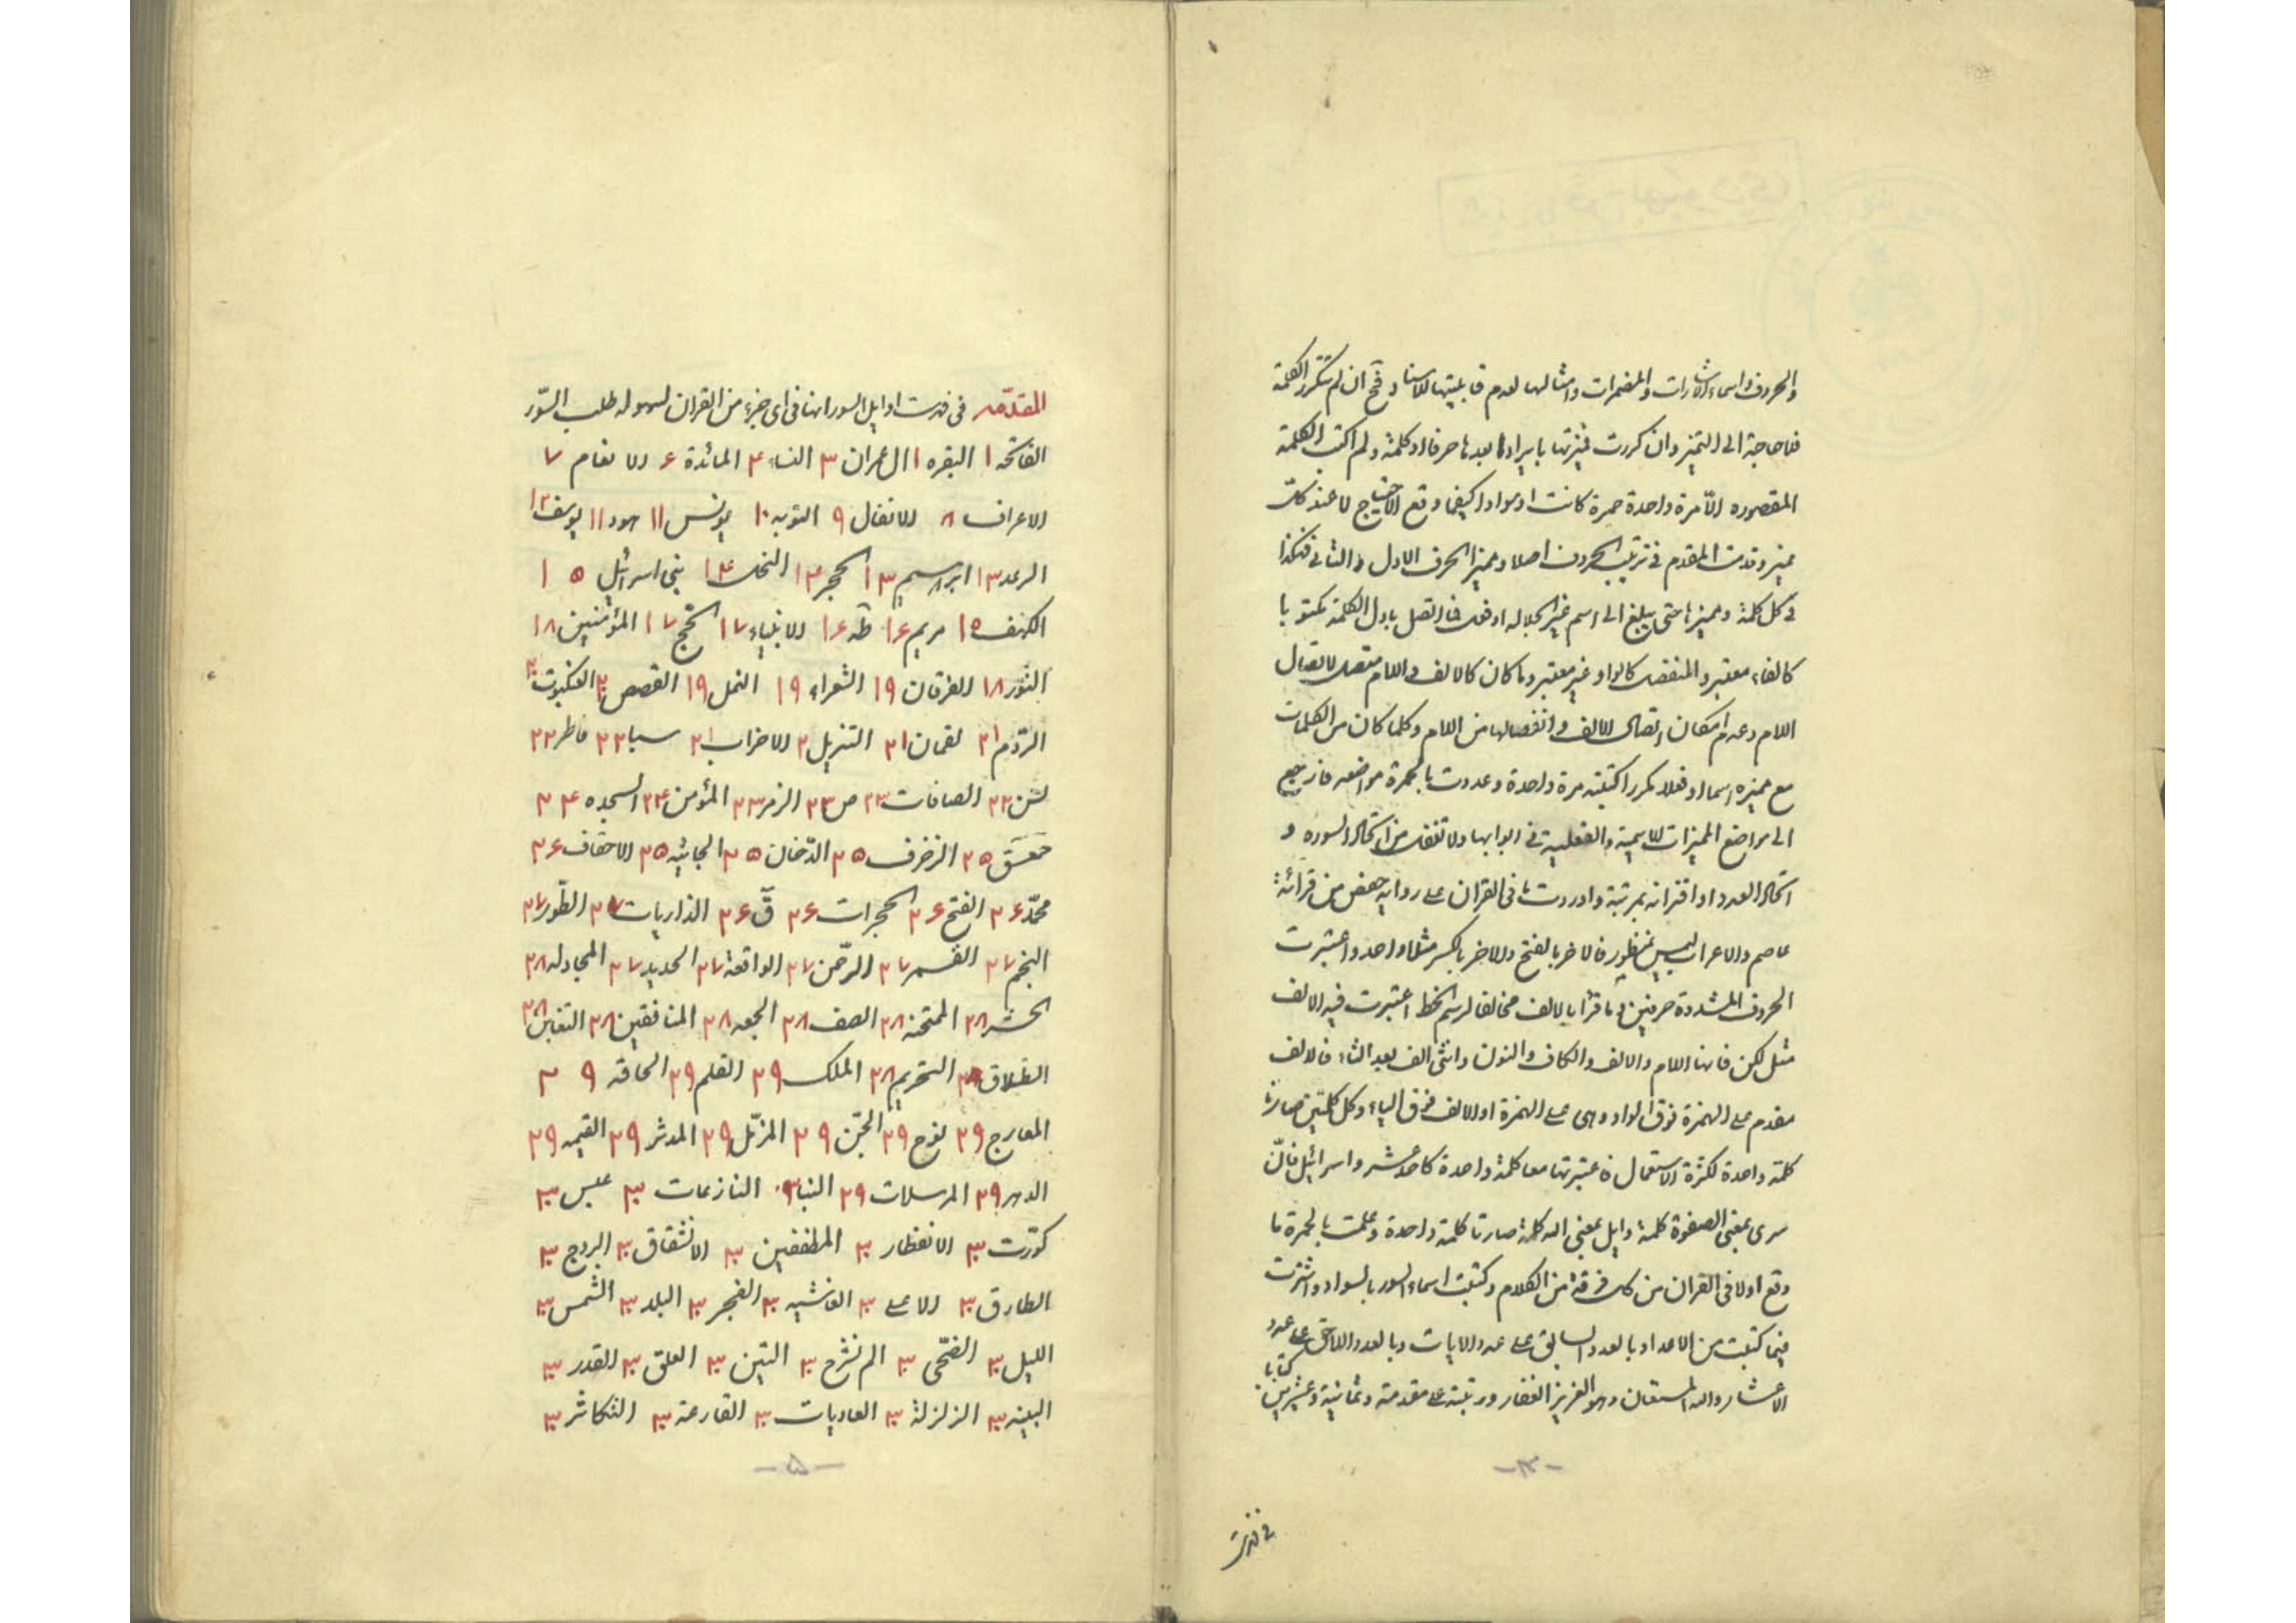 والحروف واسماء الاشارات والمضمرات وامثالها لعدم قابليتها للاسناد وقح ان لم تتكرر الكلمة
فلا حاجة الى التميز وان كررت ميزتها بايراد ما بعدها حرفا او كلمة ولم اكتب الكلمة
المقصوره الا مرة واحدة حمرة كانت او سوادا كيفما وقع الاحتياج لا عند كل
مميز وقدمت المقدم فى ترتيب الحروف اصلا ومميزا الحرف الاول فالثانى فهكذا
فى كل كلمة ومميزها حتى يبلغ الى اسم غير الجلاله او فعل فما اتصل باول الكلمة مكتوبا
كالفاء معتبر والمنفصل كالواو غير معتبر وما كان كالالف واللام متصل لاتصال
اللام وعدم امكان اتصال الالف وانفصالها من اللام وكلما كان من الكلمات
مع مميزه اسما او فعلا مكررا كتبته مرة واحدة وعددت بالحمرة مواضعه فارجع
الى مواضع المميزات الاسمية والفعلية فى ابوابها ولا تغفل من اتحاد السوره و
اتحاد العدد او اقترانه بمرتبة واوردت ما فى القران على رواية حفص من قرائة
عاصم والاعراب ليس بمنظور فالاخر بالفتح والاخر بالكسر مثلا واحد واعتبرت
الحروف المشددة حرفين وما قرأ بالالف مخالفا لرسم الخط اعتبرت فيه الالف
مثل لكن فانها اللام والالف والكاف والنون وانثى الف بعد الثاء فالالف
مقدم على الهمزة فوق الواو وهى على الهمزة او الالف فوق الياء وكل كلمتين صارتا
كلمة واحدة لكثرة الاستعمال فاعتبرتها معا كلمة واحدة كاحد عشر واسرائيل فانّ
سرى بمعنى الصفوة كلمة وايل بمعنى اله كلمة صارتا كلمة واحدة وعلمت بالحمرة ما
وقع اولا فى القران من كل فرقة من الكلام وكتبت اسماء السور بالسواد واشرت
فيما كتبت من الاعداد بالعدد السابق على عدد الايات وبالعدد اللاحق على عدد
الاعشار والله المستعان وهو العزيز الغفار ورتبته على مقدمة وثمانية وعشرين كتابا
-٤-
فى فهرست
المقدّمه فى فهرست اوايل السور انها فى اى جزء من القران لسهوله طلب السّور
الفاتحه ١ البقره ١ ال عمران ٣ النساء ٤ المائدة ۶ الانعام ٧
الاعراف ٨ الانفال ٩ التوبه ١٠ يونس ١١ هود ١١ يوسف ١٢
الرعد ١٣ ابراهيم ١٣ الحجر ١٤ النحل ١٤ بنى اسرائيل ١٥
الكهف ١٥ مريم ١۶ طه ١۶ الانبياء ١٧ الحّج ١٧ المؤمنين ١٨
النّور ١٨ الفرقان ١٩ الشعراء ١٩ النمل ١٩ القصص ٢٠ العنكبوت ٢٠
الرّوم ٢١ لقمان ٢١ التنزيل ٢١ الاحزاب ٢١ سبا ٢٢ فاطر ٢٢
يس ٢٢ الصافات ٢٣ ص ٢٣ الزمر ٢٣ المؤمن ٢٤ السجده ٢٤
حمعسق ٢٥ الزخرف ٢٥ الدّخان ٢٥ الجاثيه ٢٥ الاحقاف ٢۶
محمّد ٢۶ الفتح ٢۶ الحجرات ٢۶ ق ٢۶ الذاريات ٢٧ الطّور ٢٧
النجم ٢٧ القمر ٢٧ الرحّمن ٢٧ الواقعة ٢٧ الحديد ٢٧ المجادله ٢٨
الحشر ٢٨ الممتحنه ٢٨ الصف ٢٨ الجمعه ٢٨ المنافقين ٢٨ التغابن ٢٨
الطّلاق ٢٨ التحريم ٢٨ الملك ٢٩ القلم ٢٩ الحاقه ٢٩
المعارج ٢٩ نوح ٢٩ الجّن ٢٩ المزمّل ٢٩ المدثر ٢٩ القيمه ٢٩
الدهر ٢٩ المرسلات ٢٩ النبا ٣٠ النازعات ٣٠ عبس ٣٠
كوّرت ٣٠ الانفطار ٣٠ المطففين ٣٠ الانشقاق ٣٠ البروج ٣٠
الطارق ٣٠ الاعلى ٣٠ الغاشيه ٣٠ الفجر ٣٠ البلد ٣٠ الشمس ٣٠
الليل ٣٠ الضّحى ٣٠ الم نشرح ٣٠ التين ٣٠ العلق ٣٠ القدر ٣٠
البينه ٣٠ الزلزلة ٣٠ العاديات ٣٠ القارعة ٣٠ التكاثر ٣٠
-۵-